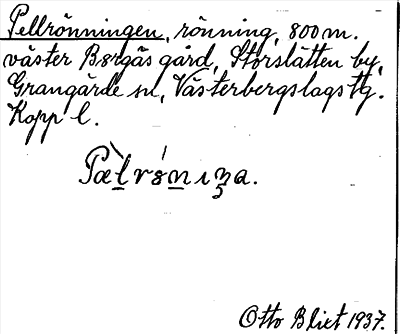 Pellrönningen, rönning, 800 m.
väster Bergås gård, Storslätten by,
Grangärde sn, Västerbergslags tg.
Kopp. l.
Pæ̀lrönıŋa.
Otto Blixt 1937.